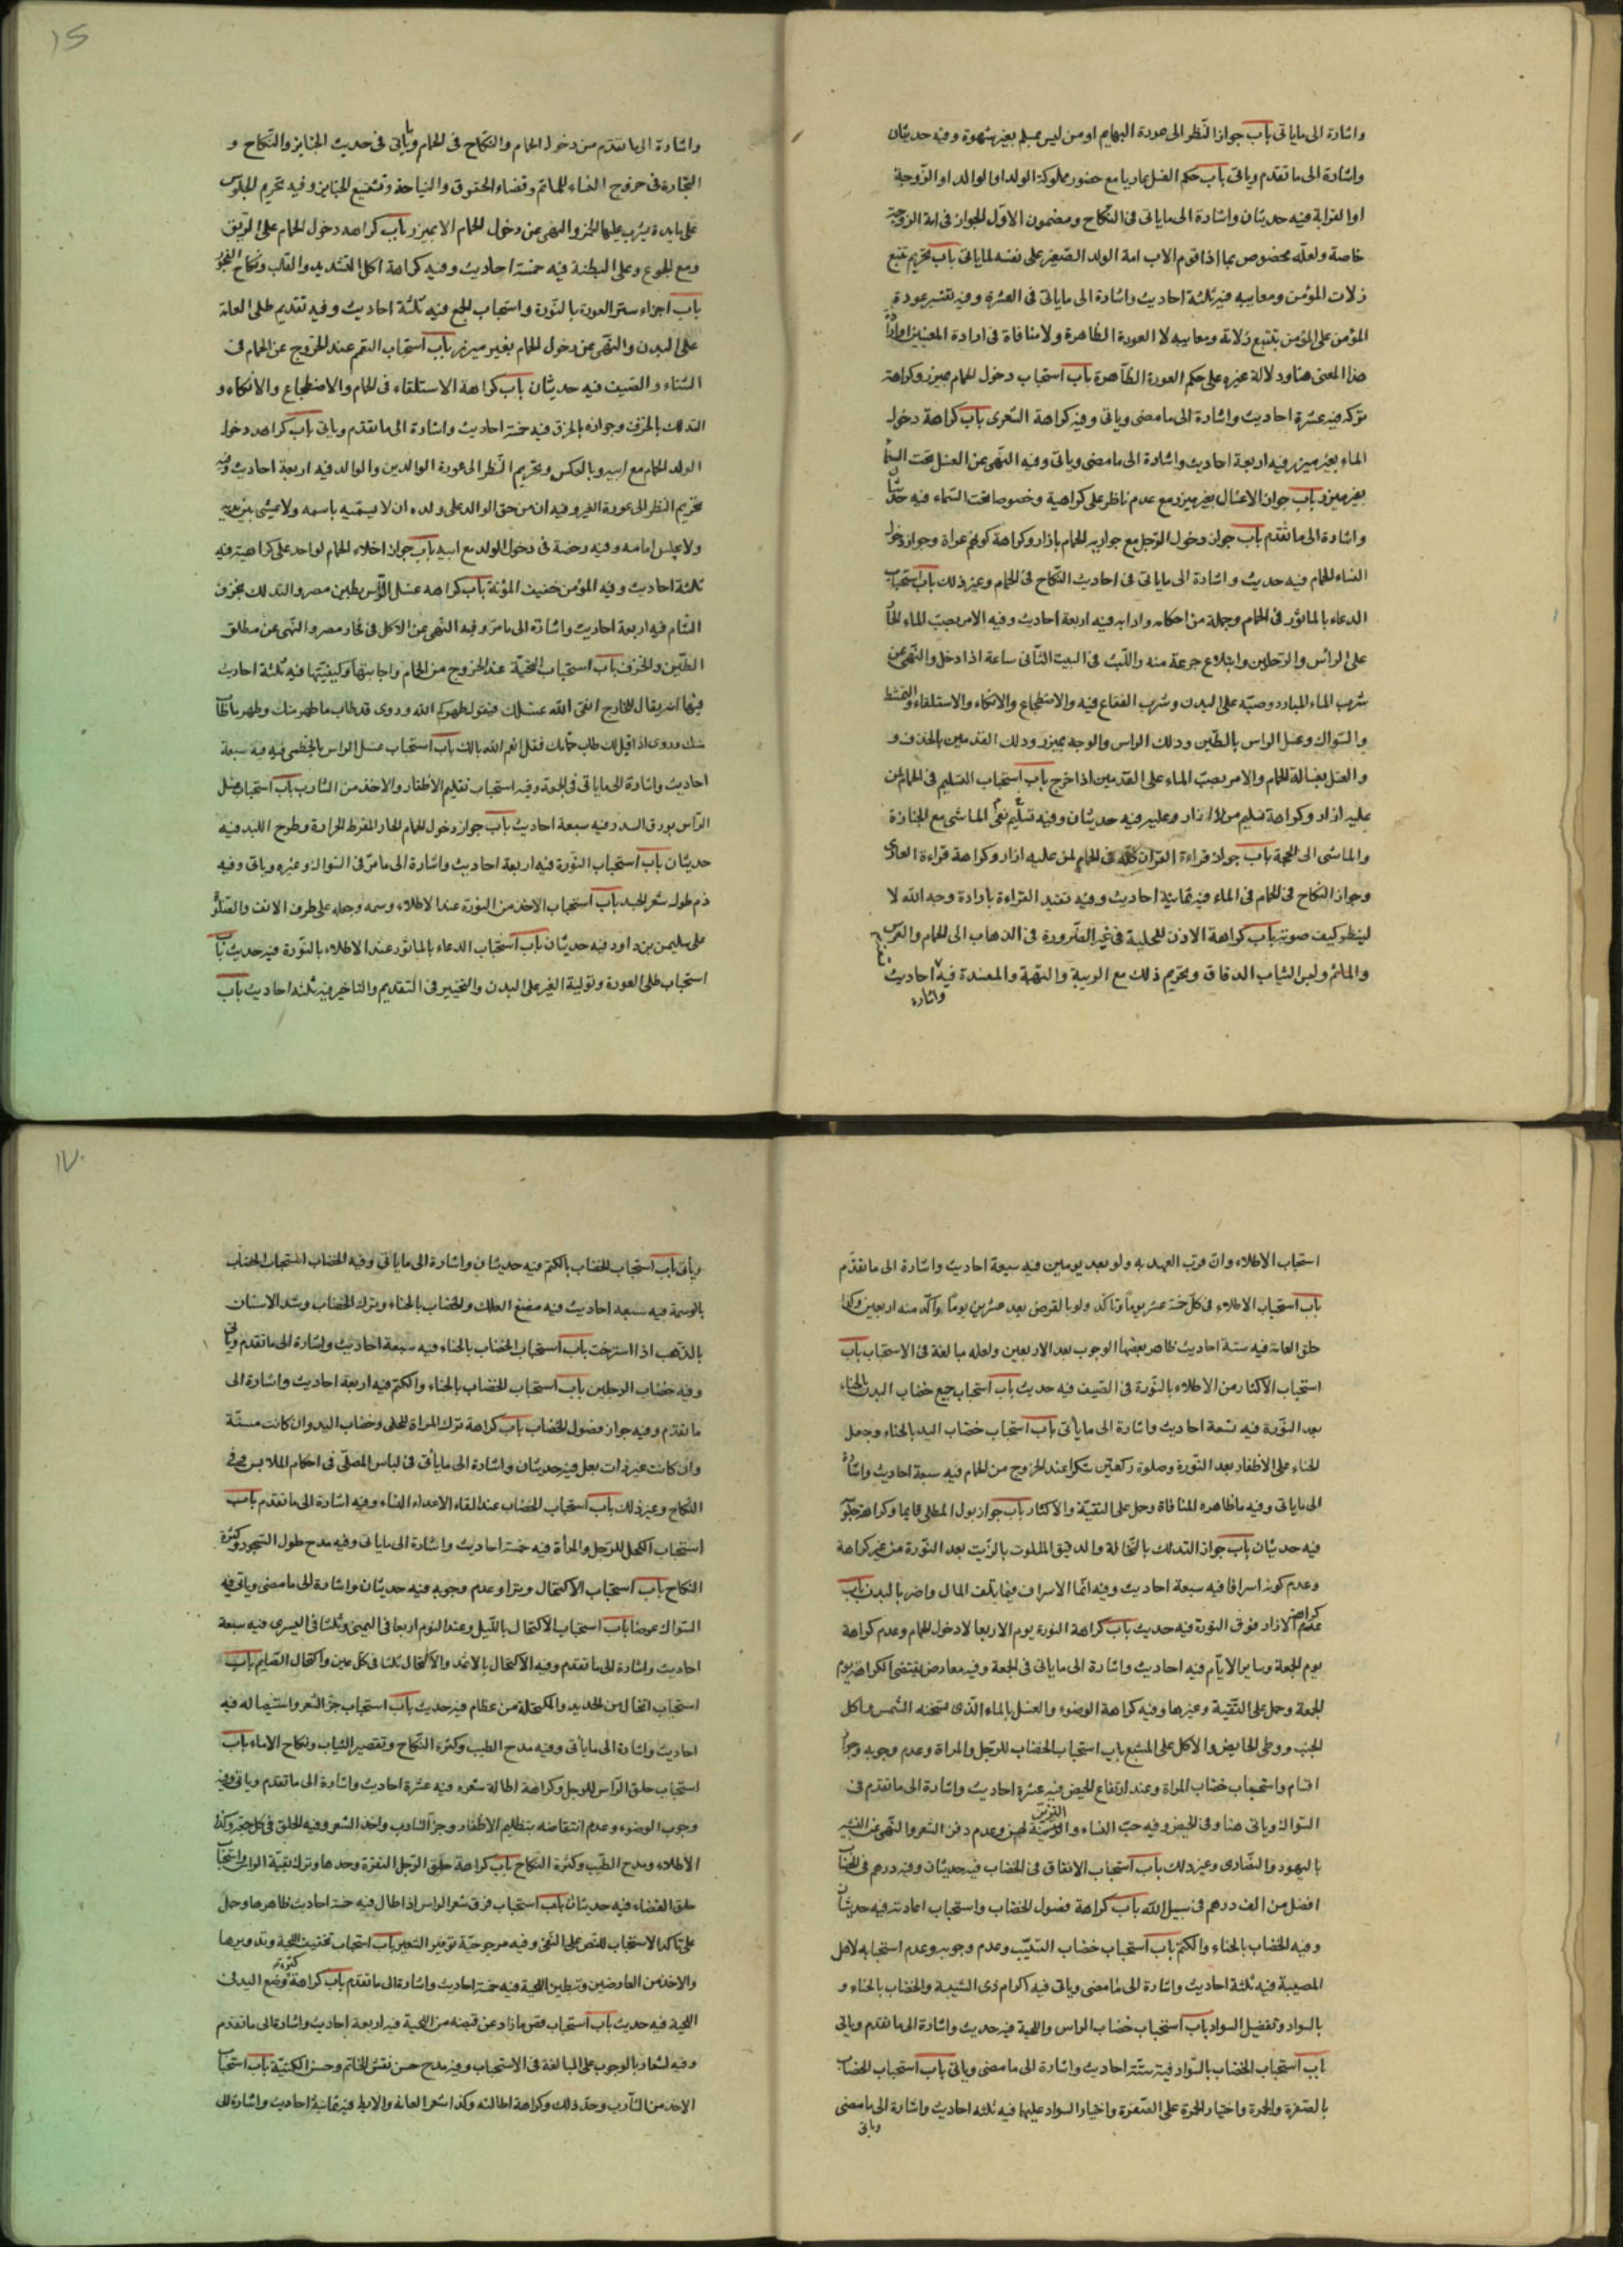 واشارة الى ماياتى باب جواز النّظر الى عورة البهايم او من ليس بمسلم بغير شهوة وفيه حديثان
واشارة الى ما تقدم وياتى باب حكم الغسل عاريا مع حضور مملوكة الولد او الوالد او الزّوجة
او القرابة فيه حديثان واشارة الى ماياتى فى النّكاح ومضمون الاوّل الجواز فى امة الزوجة
خاصة ولعلّه مخصوص بما اذا قوم الاب امة الولد الصّغير على نفسه لماياتى باب تحريم تتبع
زلات المؤمن ومعايبه فيه ثلثة احاديث واشارة الى ماياتى فى العشرة وفيه تفسير عورة
المؤمن على المؤمن بتتبع زلاته ومعايبه لا العورة الظاهرة ولا منافاة فى ارادة المعنيين
هذا المعنى هنا ودلالة غيره على حكم العورة الظّاهرة باب استحباب دخول الحمام بميزر وكراهة
تركه فيه عشرة احاديث واشارة الى ما مضى وياتى وفيه كراهة التعرى باب كراهة دخول
الماء بغير ميزر فيه اربعة احاديث واشارة الى ما مضى وياتى وفيه النّهى عن الغسل تحت السّماء
بغير ميزر باب جواز الاغتسال بغير ميزر مع عدم ناظر على كراهية وخصوصا تحت السّماء فيه حديثان
واشارة الى ما تقدم باب جواز دخول الرّجل مع جواريه الحمام بازار وكراهة كونهم عراة وجواز دخول
النساء الحمام فيه حديث واشارة الى ماياتى فى احاديث النّكاح فى الحمام وغير ذلك باب استحباب
الدعاء بالمأثور فى الحمام وجملة من احكامه وادابه فيه اربعة احاديث وفيه الامر بصبّ الماء الحار
على الرأس والرّجلين وابتلاع جرعة منه واللّبث فى البيت الثّانى ساعة اذا دخل والنّهى عن
شرب الماء البارد وصبّه على البدن وشرب الفقاع فيه والاضطجاع والاتكاء والاستلقاء والتمشط
والسّواك وغسل الراس بالطّين ودلك الراس والوجه بميزر ودلك القدمين بالخذف و
والغسل بغسالة الحمام والامر بصبّ الماء على القدمين اذا خرج باب استحباب التسليم فى الحمام لمن
عليه ازار وكراهة تسليم من لا ازار عليه فيه حديثان وفيه تسليم نفى الماشى مع الجنازة
والماشى الى الجمعة باب جواز قراءة القران كلّه فى الحمام لمن عليه ازار وكراهة قراءة العارى
وجواز النكاح فى الحمام فى الماء فيه ثمانية احاديث وفيه تقييد القراءة بارادة وجه الله لا
لينظر كيف صوته باب كراهة الاذن للحليلة فى غير الضّرورة فى الذهاب الى الحمام والعرس
والماتم ولبس الثياب الدقاق وتحريم ذلك مع الريبة والتهمة والمفسدة فيه احاديث
واشارة
١٦
واشارة الى ما تقدّم من دخول الحمام والنّكاح فى الحمام وياتى فى حديث الجنايز والنّكاح و
التّجارة فى خروج النساء للماتم وقضاء الحقوق والنياحة وتشييع الجنايز وفيه تحريم الجلوس
على مايدة يشرب عليها الخمر والنهى عن دخول الحمام الا بميزر باب كراهة دخول الحمام على الرّيق
ومع الجوع وعلى البطنة فيه خمسة احاديث وفيه كراهة اكل القديد والقاب ونكاح العجوز
باب اجزاء ستر العورة بالنّورة واستحباب الجمع فيه ثلثة احاديث وفيه تقديم طلى العانة
على البدن والنّهى عن دخول الحمام بغير ميزر باب استحباب التعمم عند الخروج عن الحمام فى
الشتاء والصيف فيه حديثان باب كراهة الاستلقاء فى الحمام والاضطجاع والاتكاء و
التدلك بالخزف وجوازه بالخرق فيه خمسة احاديث واشارة الى ما تقدم وياتى باب كراهة دخول
الولد الحمام مع ابيه وبالعكس وتحريم النّظر الى عورة الوالدين والوالد فيه اربعة احاديث وفيه
تحريم النظر الى عورة الغير وفيه ان من حق الوالد على ولده ان لا يسمّيه باسمه ولا يمشى بين يديه
ولا يجلس امامه وفيه رخصة فى دخول الولد مع ابيه باب جواز اخلاء الحمام لواحد على كراهية فيه
ثلثة احاديث وفيه المؤمن خفيف المؤنة باب كراهة غسل الرّاس بطين مصر والتدلك بخزف
الشام فيه اربعة احاديث واشارة الى ما مرّ وفيه النّهى عن الاكل فى فخار مصر والنّهى عن مطلق
الطّين والخزف باب استحباب التحيّة عند الخروج من الحمام واجابتها وكيفيّتها فيه ثلثة احاديث
فيها انه يقال للخارج انقى الله غسلك فيقول طهركم الله وروى قد طاب ما طهر منك وطهر ما طاب
منك وروى اذا قيل لك طاب حمّامك فقل انعم الله بالك باب استحباب غسل الراس بالخطمى فيه سبعة
احاديث واشارة الى ماياتى فى الجمعة وفيه استحباب تقليم الاظفار والاخذ من الشّارب باب استحباب غسل
الرّاس بورق السدر فيه سبعة احاديث باب جواز دخول الحمام الحار المفرط الحرارة وطرح اللبد فيه
حديثان باب استحباب النّورة فيه اربعة احاديث واشارة الى ما مرّ فى السّواك وغيره وياتى وفيه
ذم طول شعر الجسد باب استحباب الاخذ من النورة عند الاطلاء وشمه وجعله على طرف الانف والصّلوة
على سليمن بن داود فيه حديثان باب استحباب الدعاء بالماثور عند الاطلاء بالنّورة فيه حديث باب
استحباب طلى العورة وتولية الغير على البدن والتخيير فى التقديم والتاخير فيه ثلثة احاديث باب
استحباب الاطلاء وان قرب العهد به ولو بعد يومين فيه سبعة احاديث واشارة الى ما تقدّم
باب استحباب الاطلاء فى كلّ خمسة عشر يوماً وتاكّد ولو بالقرض بعد عشرين يوماً واكّد منه اربعين وكذا
حلق العانة فيه ستة احاديث ظاهر بعضها الوجوب بعد الاربعين ولعله مبالغة فى الاستحباب باب
استحباب الاكثار من الاطلاء بالنّورة فى الصّيف فيه حديث باب استحباب جميع خضاب البدن بالحناء
بعد النّورة فيه تسعة احاديث واشارة الى ماياتى باب استحباب خضاب اليد بالحناء وجعل
الحناء على الاظفار بعد النّورة وصلوة ركعتين شكرا عند الخروج من الحمام فيه سبعة احاديث واشارة
الى ماياتى وفيه ما ظاهره المنافاة وحمل على التقيّة والاكثار باب جواز بول المطلى قايما وكراهة جلوسه
فيه حديثان باب جواز التدلك بالنّخالة والدقيق الملتوت بالزّيت بعد النّورة من غير كراهة
وعدم كونه اسرافا فيه سبعة احاديث وفيه انّما الاسراف فيما يتلف المال واضر بالبدن باب
عدم كراهة الازار فوق النورة فيه حديث باب كراهة النورة يوم الاربعا لا دخول الحمام وعدم كراهة
يوم الجمعة وساير الايام فيه احاديث واشارة الى ماياتى فى الجمعة وفيه معارض يقتضى الكراهة يوم
الجمعة وحمل على التّقية وغيرها وفيه كراهة الوضوء والغسل بالماء الّذى تسخنه الشّمس والاكل
الجنب ووطى الحايض والاكل على الشبع باب استحباب الخضاب للرّجل والمراة وعدم وجوبه
اقسام واستحباب خضاب المراة وعند ارتفاع الحيض فيه عشرة احاديث واشارة الى ما تقدّم فى
السّواك وياتى هنا وفى الحيض وفيه حبّ النساء والتزين لهن وعدم دفن الشعر والنّهى عن التشبّه
باليهود والنّصارى وغير ذلك باب استحباب الانفاق فى الخضاب فيه حديثان وفيه درهم فى الخضاب
افضل من الف درهم فى سبيل الله باب كراهة فضول الخضاب واستحباب اعادته فيه حديثان
وفيه الخضاب بالحناء والكتم باب استحباب خضاب الشيب وعدم وجوبه وعدم استحبابه لاهل
المصيبة فيه ثلثة احاديث واشارة الى ما مضى وياتى فيه اكرام ذى الشيبة والخضاب بالحناء و
بالسواد وتفضيل السواد باب استحباب خضاب الراس واللحية فيه حديث واشارة الى ما تقدم وياتى
باب استحباب الخضاب بالسّواد فيه ستّة احاديث واشارة الى ما مضى وياتى باب استحباب الخضاب
بالصّفرة والحمرة واختيار الحمرة على الصّفرة واختيار السواد عليهما فيه ثلثة احاديث واشارة الى ما مضى
وياتى
١٧
وياتى باب استحباب الخضاب بالكتم فيه حديثان واشارة الى ماياتى وفيه الخضاب باب استحباب الخضاب
بالوسمة فيه سبعة احاديث فيه مضغ العلك والخضاب بالحناء وترك الخضاب وشد الاسنان
بالذهب اذا استرخت باب استحباب الخضاب بالحناء فيه سبعة احاديث واشارة الى ما تقدم وياتى
وفيه خضاب الرجلين باب استحباب الخضاب بالحناء والكتم فيه اربعة احاديث واشارة الى
ما تقدم وفيه جواز فضول الخضاب باب كراهة ترك المراة للحلى وخضاب اليد وان كانت مسنّة
وان كانت غير ذات بعل فيه حديثان واشارة الى ماياتى فى لباس المصلّى فى احكام الملابس وفى
النّكاح وغير ذلك باب استحباب الخضاب عند لقاء الاعداء والنساء وفيه اشارة الى ما تقدم باب
استحباب الكحل للرّجل والمرأة فيه خمسة احاديث واشارة الى ماياتى وفيه مدح طول السّجود وكثرة
النكاح باب استحباب الاكتحال وترا وعدم وجوبه فيه حديثان واشارة الى ما مضى وياتى فيه
السّواك عرضا باب استحباب الاكتحال باللّيل وعند النوم اربعا فى اليمنى وثلثا فى اليسرى فيه سبعة
احاديث واشارة الى ما تقدم وفيه الاكتحال بالاثمد والاكتحال ثلثا فى كل عين واكتحال الصّايم باب
استحباب اتخاذ الميل من الحديد والمكحلة من عظام فيه حديث باب استحباب جزّ الشعر واستيصاله فيه
احاديث واشارة الى ماياتى وفيه مدح الطيب وكثرة النّكاح وتقصير الثياب ونكاح الاماء باب
استحباب حلق الرّاس للرجل وكراهة اطالة شعره فيه عشرة احاديث واشارة الى ما تقدم وياتى وفيه
وجوب الوضوء وعدم انتقاضه بتقليم الاظفار وجزّ الشارب واخذ الشعر وفيه الحلق فى كل جمعة وكذا
الاطلاء ومدح الطّيب وكثرة النكاح باب كراهة حلق الرّجل النقرة وحدها وترك بقيّة الراس واستحباب
حلق القفاء فيه حديثان باب استحباب فرق شعر الراس اذا طال فيه خمسة احاديث ظاهرها وحمل
على تاكد الاستحباب للنص على النّفى وفيه مرجوحيّة توفير الشعر باب استحباب تخفيف اللحية وتدويرها
والاخذ من العارضين وتبطين اللحية فيه خمسة احاديث واشارة الى ما تقدم باب كراهة كثرة وضع اليد فى
اللحية فيه حديث باب استحباب قص ما زاد عن قبضه من اللحية فيه اربعة احاديث واشارة الى ما تقدم
وفيه اشعار بالوجوب على المبالغة فى الاستحباب وفيه مدح حسن نقش الخاتم وحسن الكنيّة باب استحباب
الاخذ من الشّارب وحدّ ذلك وكراهة اطالته وكذا شعر العانة والابط فيه ثمانية احاديث واشارة الى